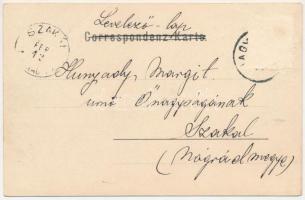 Levelező-lap
Correspondenz-Karte
SZAKAL
FEB
12
Hunyady Margit
úrnő Őnagyságának
Szakal
(Nógrádmegye)